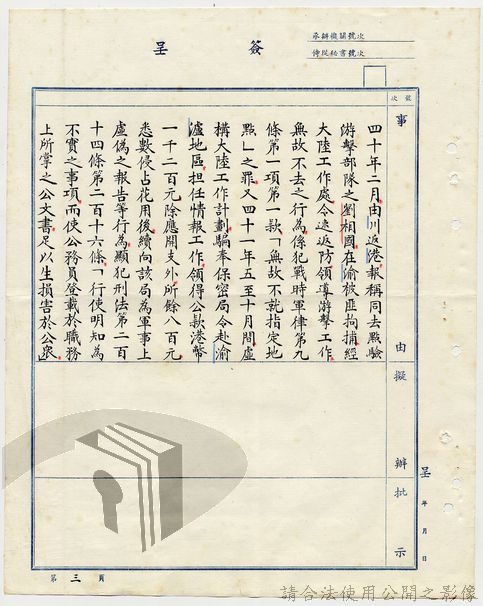 簽呈
承辦機關號次
侍從秘書號次
號次
事由
擬辦
批示
四十年二月由川返港報稱同去點驗
游擊部隊之劉相國在渝被匪拘捕經
大陸工作處令速返防領導游擊工作
無故不去之行為係犯戰時軍律第九
條第一項第一款「無故不就指定地
點」之罪又四十一年五至十月間虛
構大陸工作計劃騙奉保密局令赴渝
瀘地區担任情報工作領得公款港幣
一千二百元除應開支外所餘八百元
悉數侵占花用後續向該局為軍事上
虛偽之報告等行為顯犯刑法第二百
十四條第二百十六條「行使明知為
不實之事項而使公務員登載於職務
上所掌之公文書足以生損害於公衆
呈 年 月 日
第三頁
請合法使用公開之影像